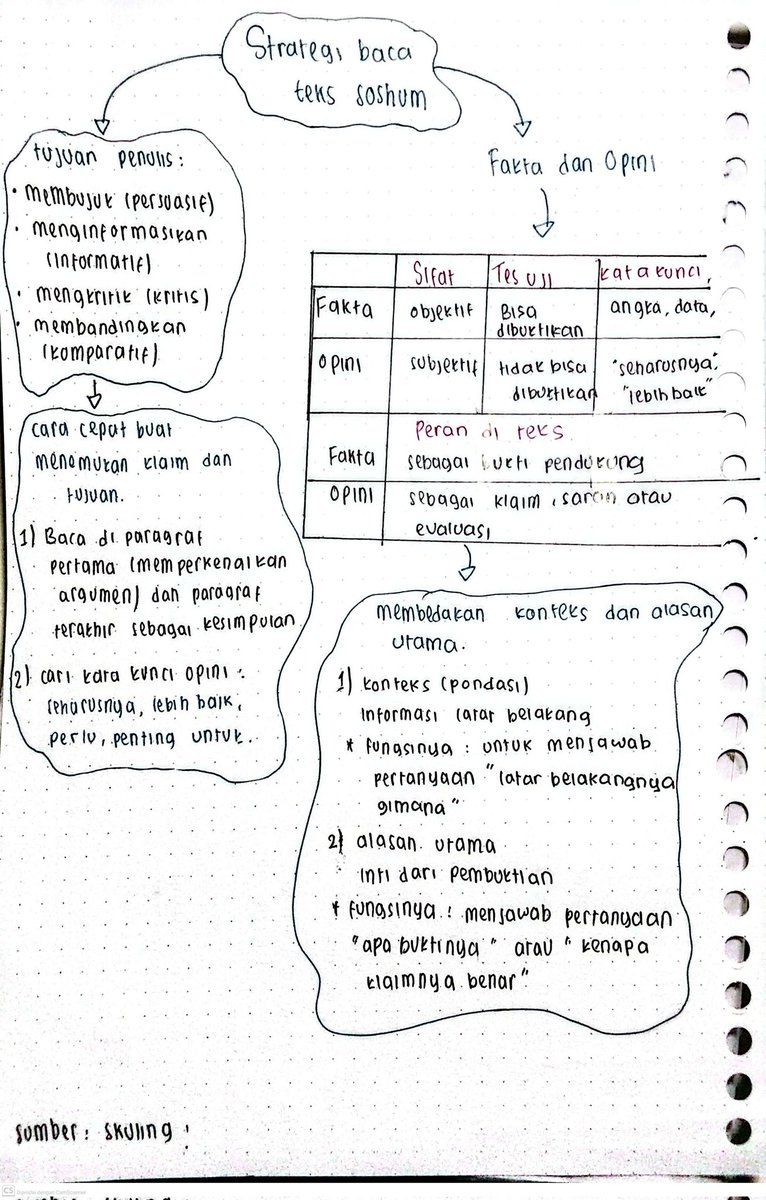 Strategi baca
teks soshum
tujuan penulis :
• membujuk (persuasif)
• menginformasikan
(informatif)
• mengkritik (kritis)
• membandingkan
(komparatif)
cara cepat buat
menemukan klaim dan
tujuan.
1) Baca di paragraf
pertama (memperkenalkan
argumen) dan paragraf
terakhir sebagai kesimpulan
2) cari kata kunci opini :
seharusnya, lebih baik,
perlu, penting untuk.
Fakta dan Opini
Sifat Tes uji kata kunci,
Fakta objektif Bisa dibuktikan angka, data,
Opini subjektif tidak bisa dibuktikan "seharusnya". "lebih baik"
Peran di teks.
Fakta sebagai bukti pendukung
Opini sebagai klaim, saran atau
evaluasi
membedakan konteks dan alasan
utama.
1) konteks (pondasi)
informasi latar belakang
* fungsinya : untuk menjawab
pertanyaan "latar belakangnya
gimana"
2) alasan utama
inti dari pembuktian
* fungsinya : menjawab pertanyaan
"apa buktinya" atau "kenapa
klaimnya benar"
sumber : skuling
CS